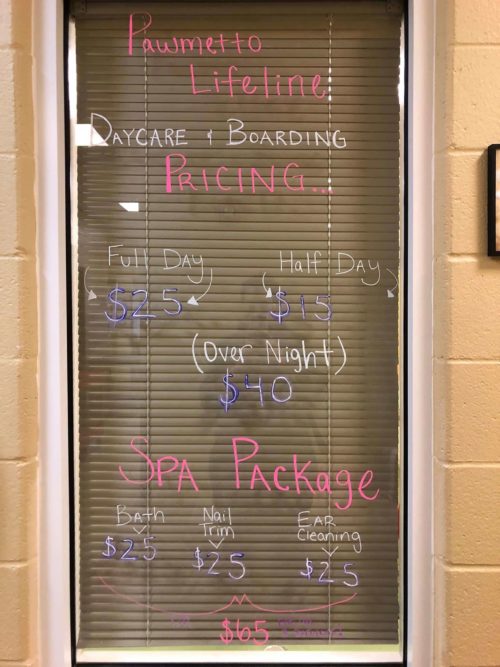 Pawmetto
Lifeline
DAYCARE & BOARDING
PRICING...
Full DAY Half DAY
$25 $15
(Over Night)
$40
SPA PACKAge
BATH Nail Trim EAR Cleaning
$25 $25 $25
$65